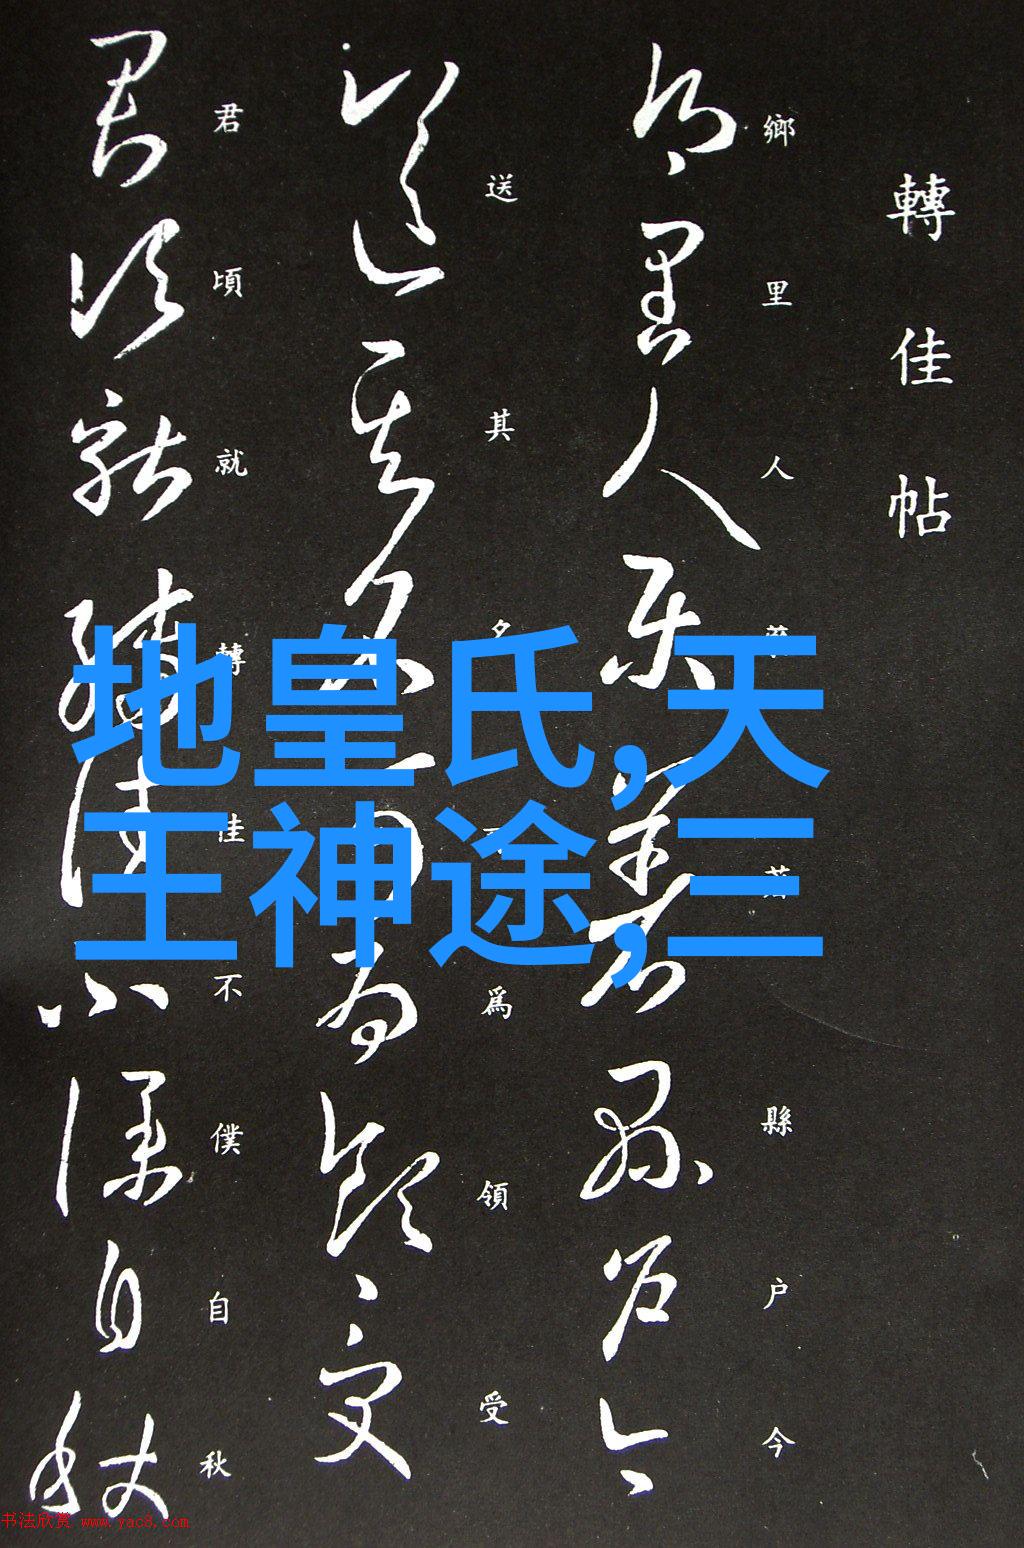 轉佳帖
鄉里人
縣户今
送其
為領受
君頃就轉佳不僕自秋
地皇氏,天
王神途,三
书法欣赏 www.yac8.com